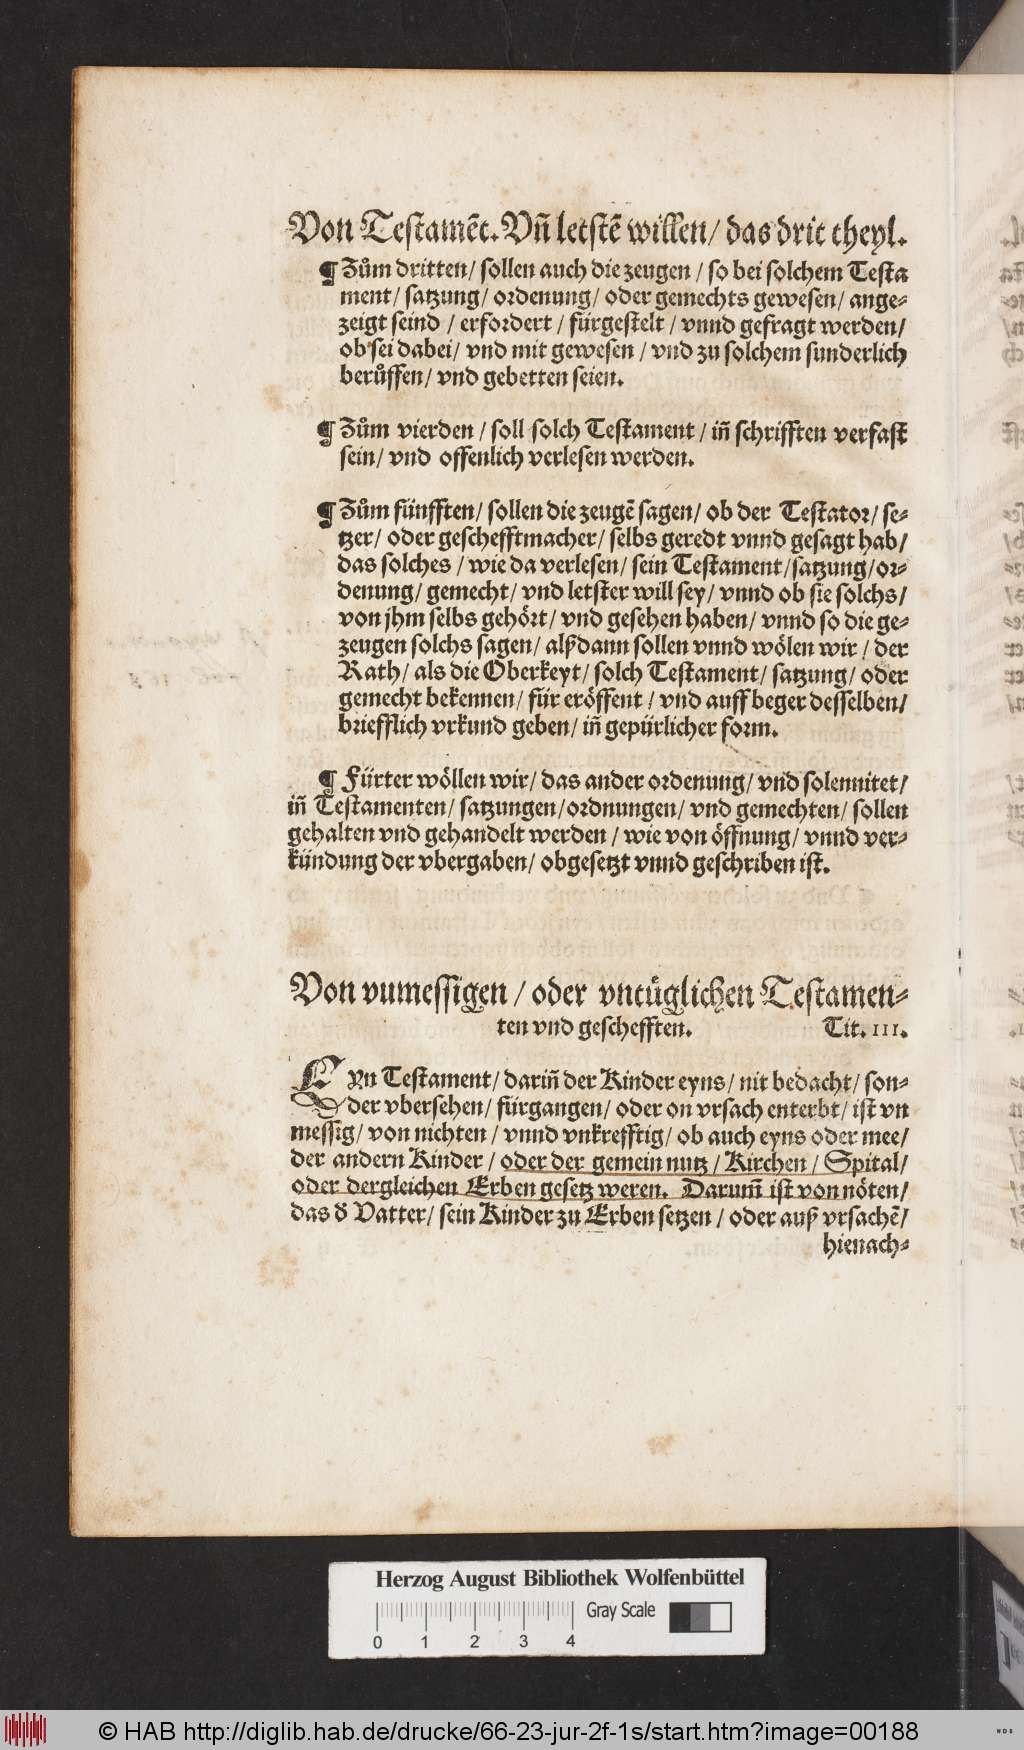 Von Testamẽt. Vñ letstẽ willen / das drit theyl.
¶ Zům dritten / sollen auch die zeugen / so bei solchem Testa
ment / satzung / ordenung / oder gemechts gewesen / ange⸗
zeigt seind / erfordert / fürgestelt / vnnd gefragt werden /
ob sei dabei / vnd mit gewesen / vnd zu solchem sunderlich
berůffen / vnd gebetten seien.
¶ Zům vierden / soll solch Testament / iñ schrifften verfast
sein / vnd offenlich verlesen werden.
¶ Zům fünfften / sollen die zeugẽ sagen / ob der Testator / se⸗
tzer / oder geschefftmacher / selbs geredt vnnd gesagt hab /
das solches / wie da verlesen / sein Testament / satzung / or⸗
denung / gemecht / vnd letster will sey / vnnd ob sie solchs /
von jhm selbs gehört / vnd gesehen haben / vnnd so die ge⸗
zeugen solchs sagen / alßdann sollen vnnd wölen wir / der
Rath / als die Oberkeyt / solch Testament / satzung / oder
gemecht bekennen / für eröffent / vnd auff beger desselben /
briefflich vrkund geben / iñ gepürlicher form.
¶ Fürter wöllen wir / das ander ordenung / vnd solennitet /
iñ Testamenten / satzungen / ordnungen / vnd gemechten / sollen
gehalten vnd gehandelt werden / wie von öffnung / vnnd ver⸗
kündung der vbergaben / obgesetzt vnnd geschriben ist.
Von vnmessigen / oder vntüglichen Testamen⸗
ten vnd geschefften. Tit. III.
EYn Testament / dariñ der Kinder eyns / nit bedacht / son⸗
der vbersehen / fürgangen / oder on vrsach enterbt / ist vn
messig / von nichten / vnnd vnkrefftig / ob auch eyns oder mee /
der andern Kinder / oder der gemein nutz / Kirchen / Spital /
oder dergleichen Erben gesetz weren. Darum̃ ist von nöten /
das d̕ Vatter / sein Kinder zu Erben setzen / oder auß vrsachẽ /
hienach⸗
Herzog August Bibliothek Wolfenbüttel
Gray Scale
0 1 2 3 4
© HAB http://diglib.hab.de/drucke/66-23-jur-2f-1s/start.htm?image=00188